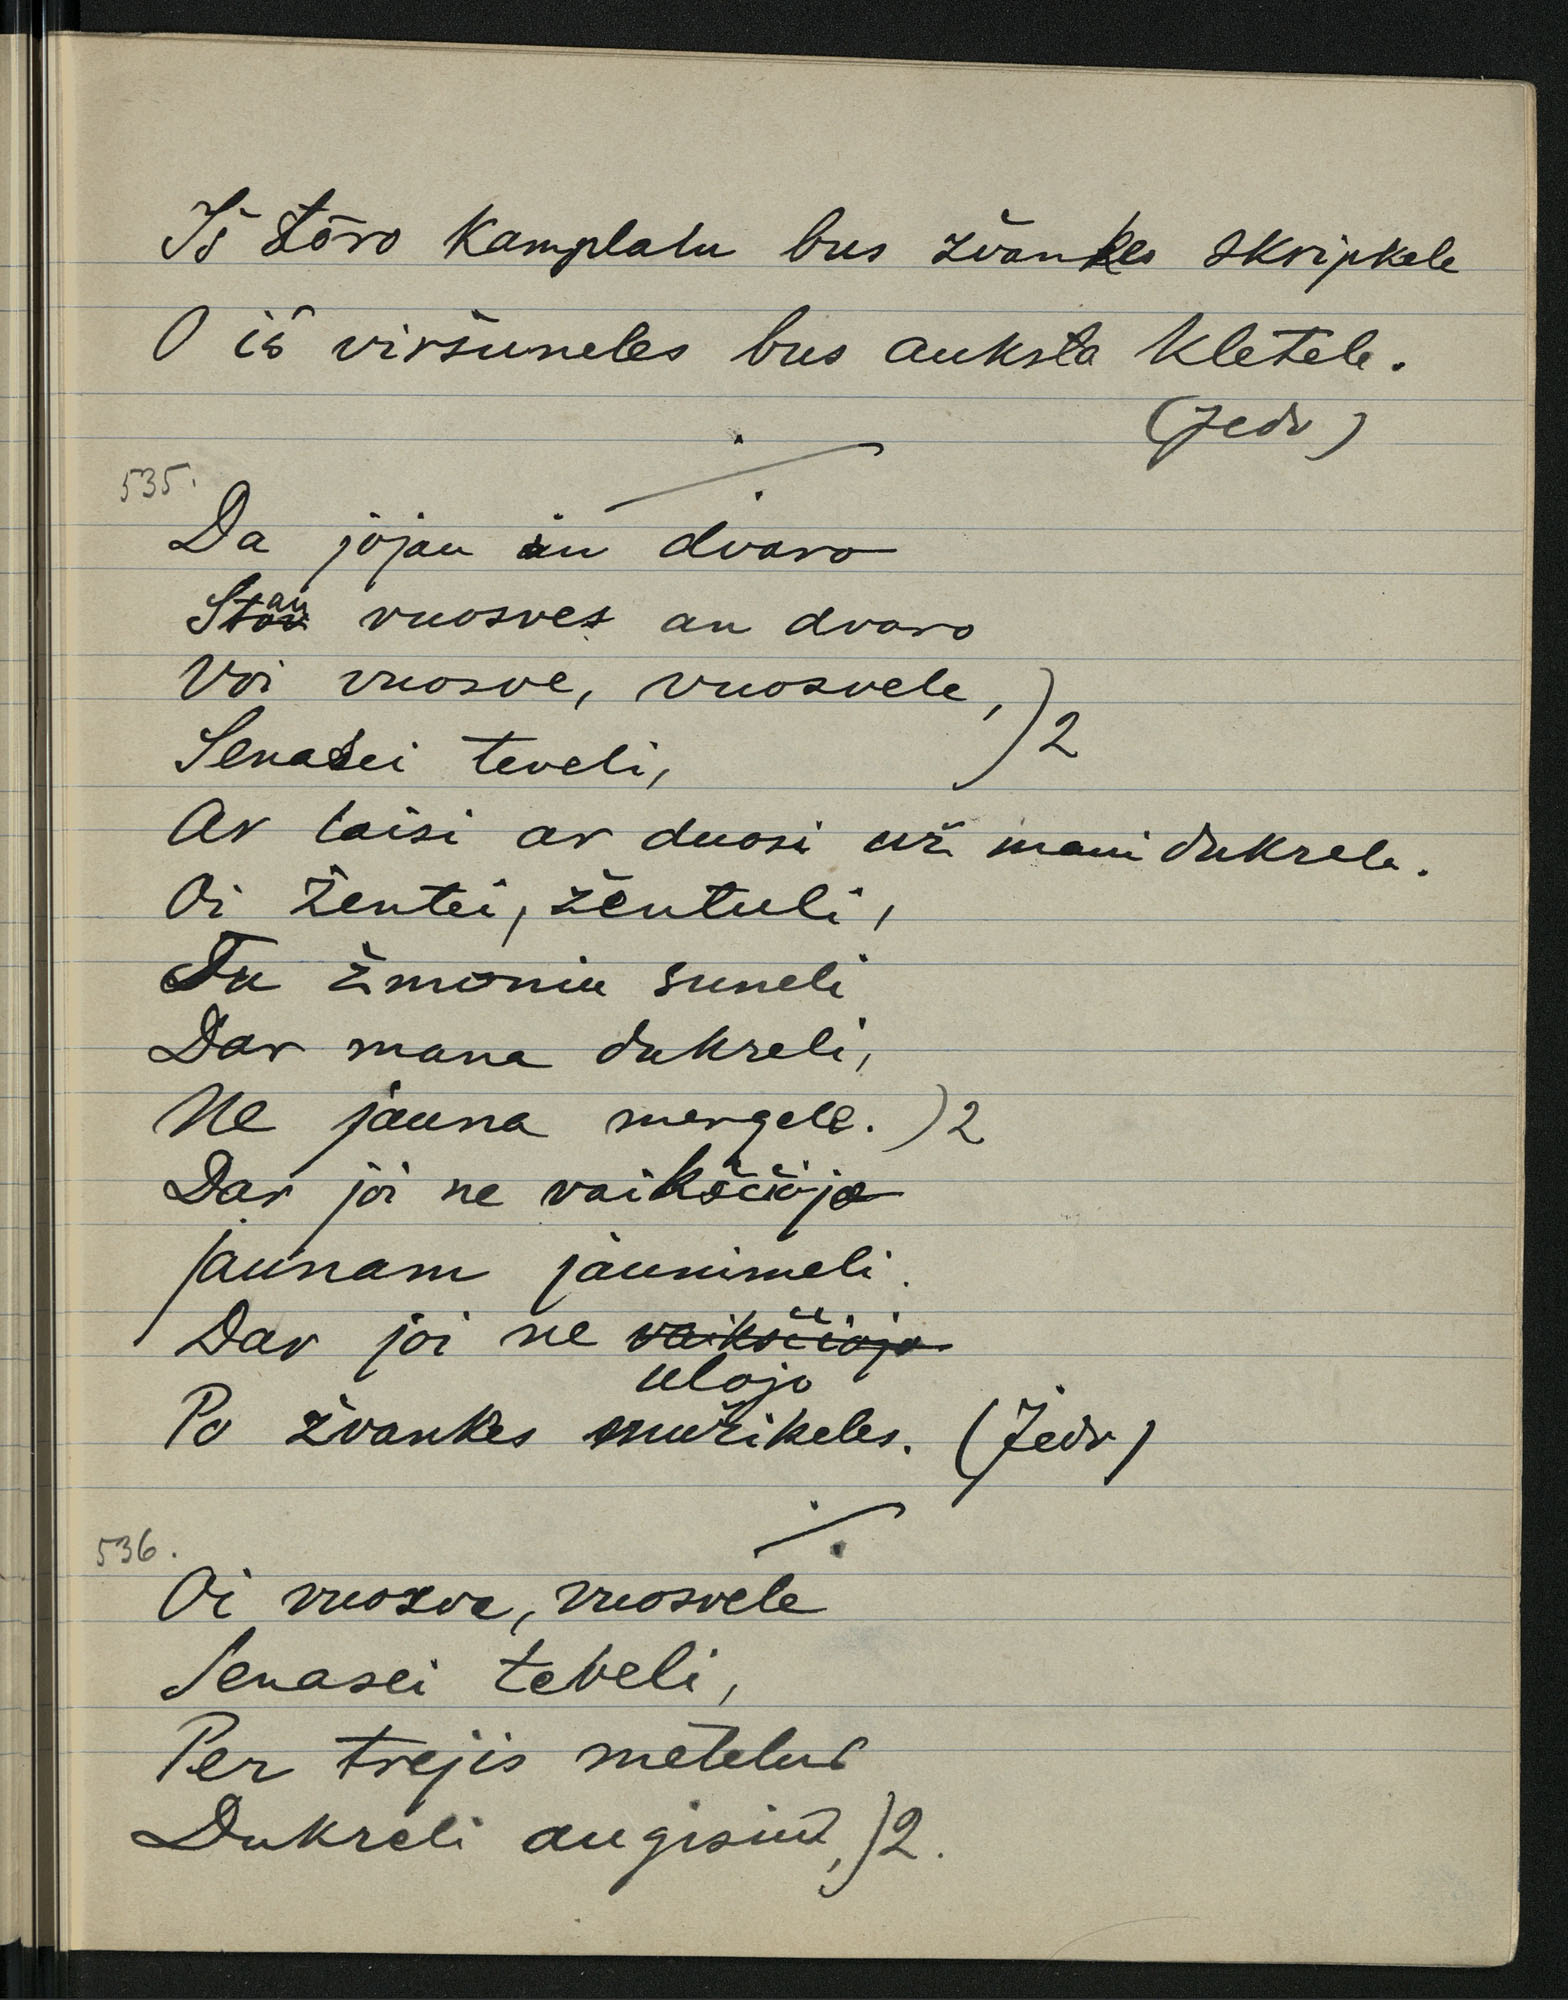 Iš tōro kamplatu bus žvankes skripkele
O iš viršuneles bus auksta kletele.
(Jedv)
535.
Da jojau in dvaro
Stau vuosves an dvaro
Voi vuosve, vuosvele, )2
Senasei teveli,
Ar laisi ar duosi už mani dukrele.
Oi žentei, žentuli,
Tu žmoniu suneli
Dar mana dukreli,
Ne jauna mergele. )2
Dar joi ne vaikščiojo
jaunam jaunimeli.
Dar joi ne vaikščiojo
ulojo
Po žvankes mužikeles. (Jedv)
536.
Oi vuosve, vuosvele
Senasei teveli,
Per trejis metelus
Dukreli augisiut, )2.